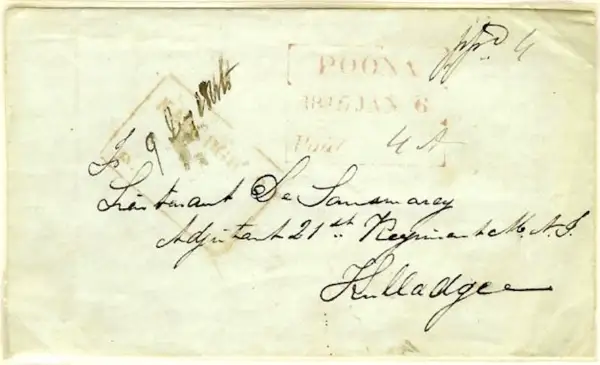 ppd 4
POONA
1845 JAN 6
Paid 4 A
To
Lieutenant De Sausmarez
Adjutant 21st Regiment N. I.
Kulladgee